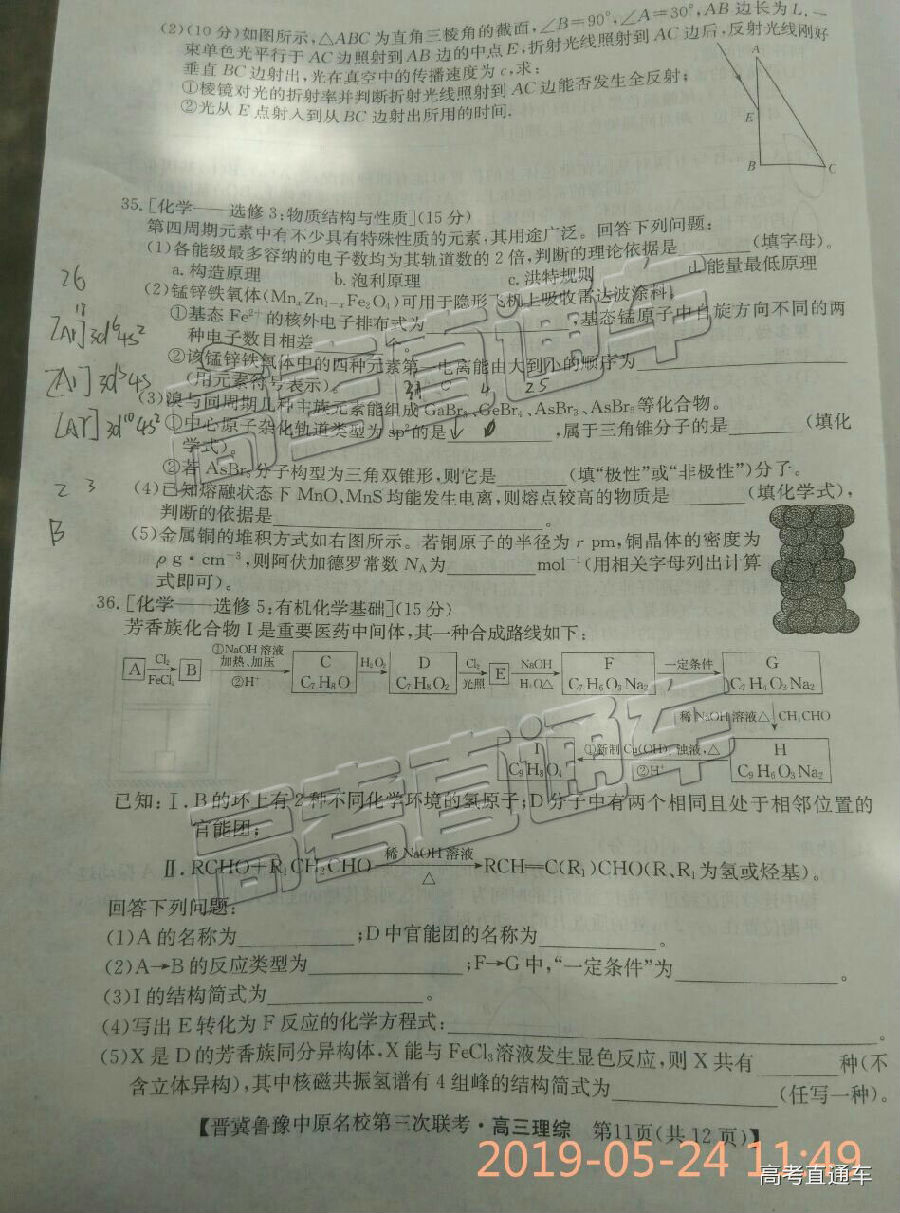 (2)(10分)如图所示,△ABC为直角三棱角的截面,∠B=90°,∠A=30°,AB边长为L.一
束单色光平行于AC边照射到AB边的中点E,折射光线照射到AC边后,反射光线刚好
垂直BC边射出,光在真空中的传播速度为c,求:
①棱镜对光的折射率并判断折射光线照射到AC边能否发生全反射;
②光从E点射入到从BC边射出所用的时间.
A
E
B
C
35.[化学——选修3:物质结构与性质](15分)
第四周期元素中有不少具有特殊性质的元素,其用途广泛。回答下列问题:
(1)各能级最多容纳的电子数均为其轨道数的2倍,判断的理论依据是 (填字母)。
a.构造原理 b.泡利原理 c.洪特规则 d.能量最低原理
26
(2)锰锌铁氧体(MnxZn1-xFe2O4)可用于隐形飞机上吸收雷达波涂料。
①基态Fe2+的核外电子排布式为 ;基态锰原子中自旋方向不同的两
[Ar]3d6 4s2
种电子数目相差 个。
②该锰锌铁氧体中的四种元素第一电离能由大到小的顺序为
[Ar]3d5 4s
(用元素符号表示)。 25
(3)溴与同周期几种主族元素能组成GaBr3、GeBr4、AsBr3、AsBr5等化合物。
[Ar]3d10 4s2
①中心原子杂化轨道类型为sp2的是 ,属于三角锥分子的是 (填化
学式)。
②若AsBr5分子构型为三角双锥形,则它是 (填“极性”或“非极性”)分子。
2 3
(4)已知熔融状态下MnO、MnS均能发生电离,则熔点较高的物质是 (填化学式),
判断的依据是 。
B
(5)金属铜的堆积方式如右图所示。若铜原子的半径为r pm,铜晶体的密度为
ρ g·cm-3,则阿伏加德罗常数NA为 mol-1(用相关字母列出计算
式即可)。
36.[化学——选修5:有机化学基础](15分)
芳香族化合物I是重要医药中间体,其一种合成路线如下:
A Cl2 FeCl3 B ①NaOH溶液 加热、加压 ②H+ C C7H8O H2O2 D C7H8O2 Cl2 光照 E NaOH H2O△ F C7H6O3Na2 一定条件 G C7H4O3Na2
稀NaOH溶液△ CH3CHO
I C9H8O4 ①新制Cu(OH)2浊液,△ ②H+ H C9H6O3Na2
已知:Ⅰ.B的环上有2种不同化学环境的氢原子;D分子中有两个相同且处于相邻位置的
官能团;
Ⅱ.RCHO+R1CH2CHO 稀NaOH溶液 △ RCH=C(R1)CHO(R、R1为氢或烃基)。
回答下列问题:
(1)A的名称为 ;D中官能团的名称为 。
(2)A→B的反应类型为 ;F→G中,“一定条件”为 。
(3)I的结构简式为 。
(4)写出E转化为F反应的化学方程式: 。
(5)X是D的芳香族同分异构体,X能与FeCl3溶液发生显色反应,则X共有 种(不
含立体异构),其中核磁共振氢谱有4组峰的结构简式为 (任写一种)。
【晋冀鲁豫中原名校第三次联考·高三理综 第11页(共12页)】
2019-05-24 11:49
高考直通车
高考直通车
高考直通车